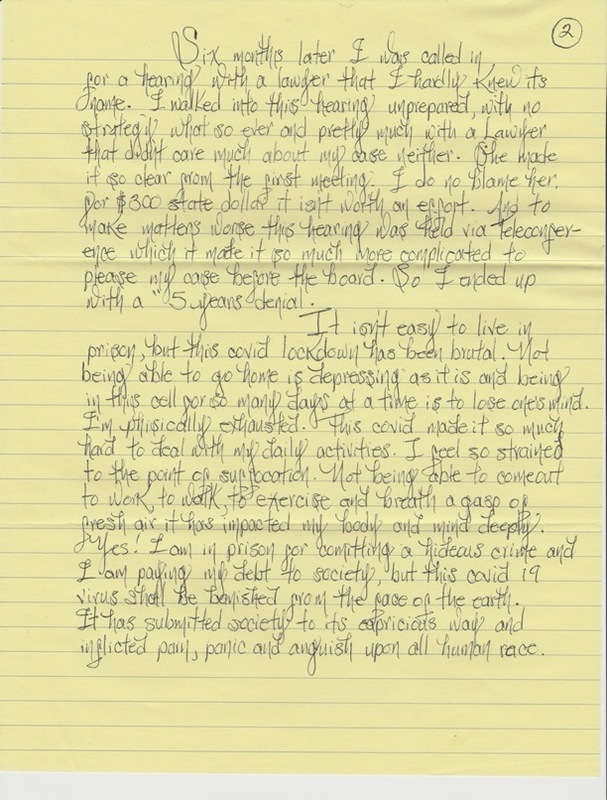 2
Six months later I was called in
for a hearing with a lawyer that I hardly knew its
name. I walked into this hearing unprepared, with no
strategy what so ever and pretty much with a Lawyer
that didn't care much about my case neither. She made
it so clear from the first meeting. I do no blame her,
for $300 state dollar it isn't worth an effort. And to
make matters worse this hearing was held via Teleconfer-
ence which it made it so much more complicated to
please my case before the board. So I ended up
with a "5 years denial.
It isn't easy to live in
prison, but this covid lockdown has been brutal. Not
being able to go home is depressing as it is and being
in this cell for so many days at a time is to lose one's mind.
I'm phisically exhausted. This covid made it so much
hard to deal with my daily activities. I feel so strained
to the point of suffocation. Not being able to comeout
to work, to walk, to exercise and breath a gasp of
fresh air it has impacted my body and mind deeply.
Yes! I am in prison for comitting a hideous crime and
I am paying my debt to society, but this covid 19
virus shall be banished from the face of the earth.
It has submitted society to its capricious way and
inflicted pain, panic and anguish upon all human race.